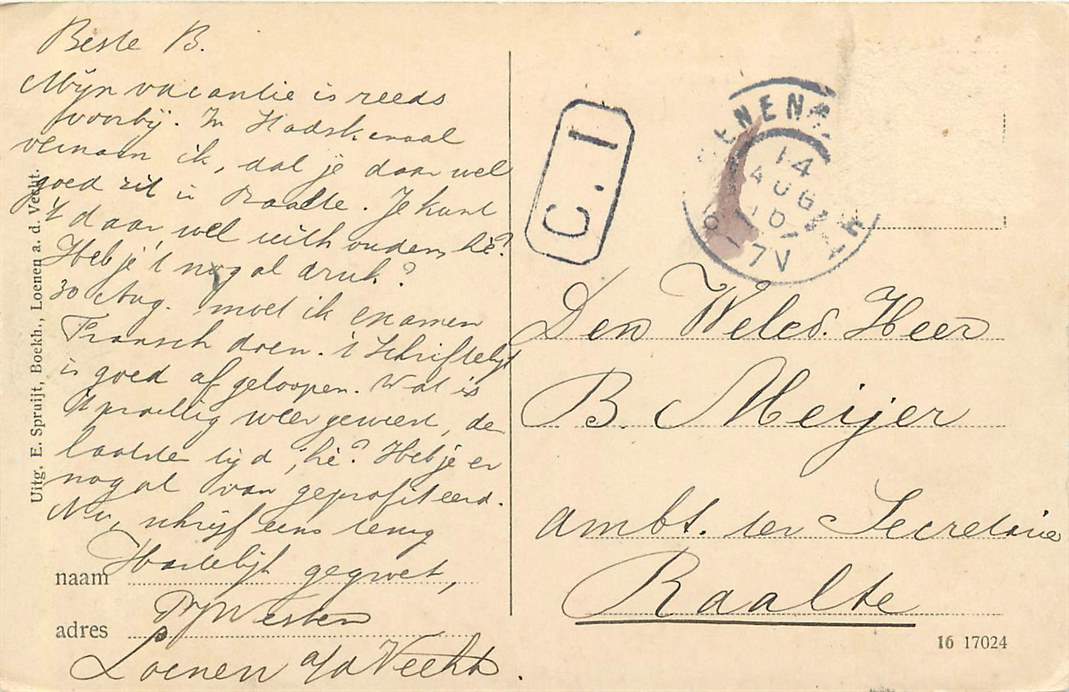 Beste B.
Mijn vacantie is reeds
voorbij. In Hadskenaal
vernam ik, dat je daar wel
goed zit in Raalte. Je kunt
't daar wel uith ouden, hè?
Heb je 't nogal druk?
30 Aug. moet ik examen
Fransch doen. 't Schriftelijk
is goed afgeloopen. Wat is
't prachtig weer geweest, de
laatste tijd, hè? Heb je er
nogal van geprofiteerd.
Nu, schrijf eens terug
Hartelijk gegroet,
naam
Westen
adres
Loenen a/d Vecht.
Uitg. E. Spruijt, Boekh., Loenen a. d. Vecht.
C. I
14
AUG
10
7V
Den Weled. Heer
B. Meijer
ambt. ter Secretarie
Raalte
16 17024